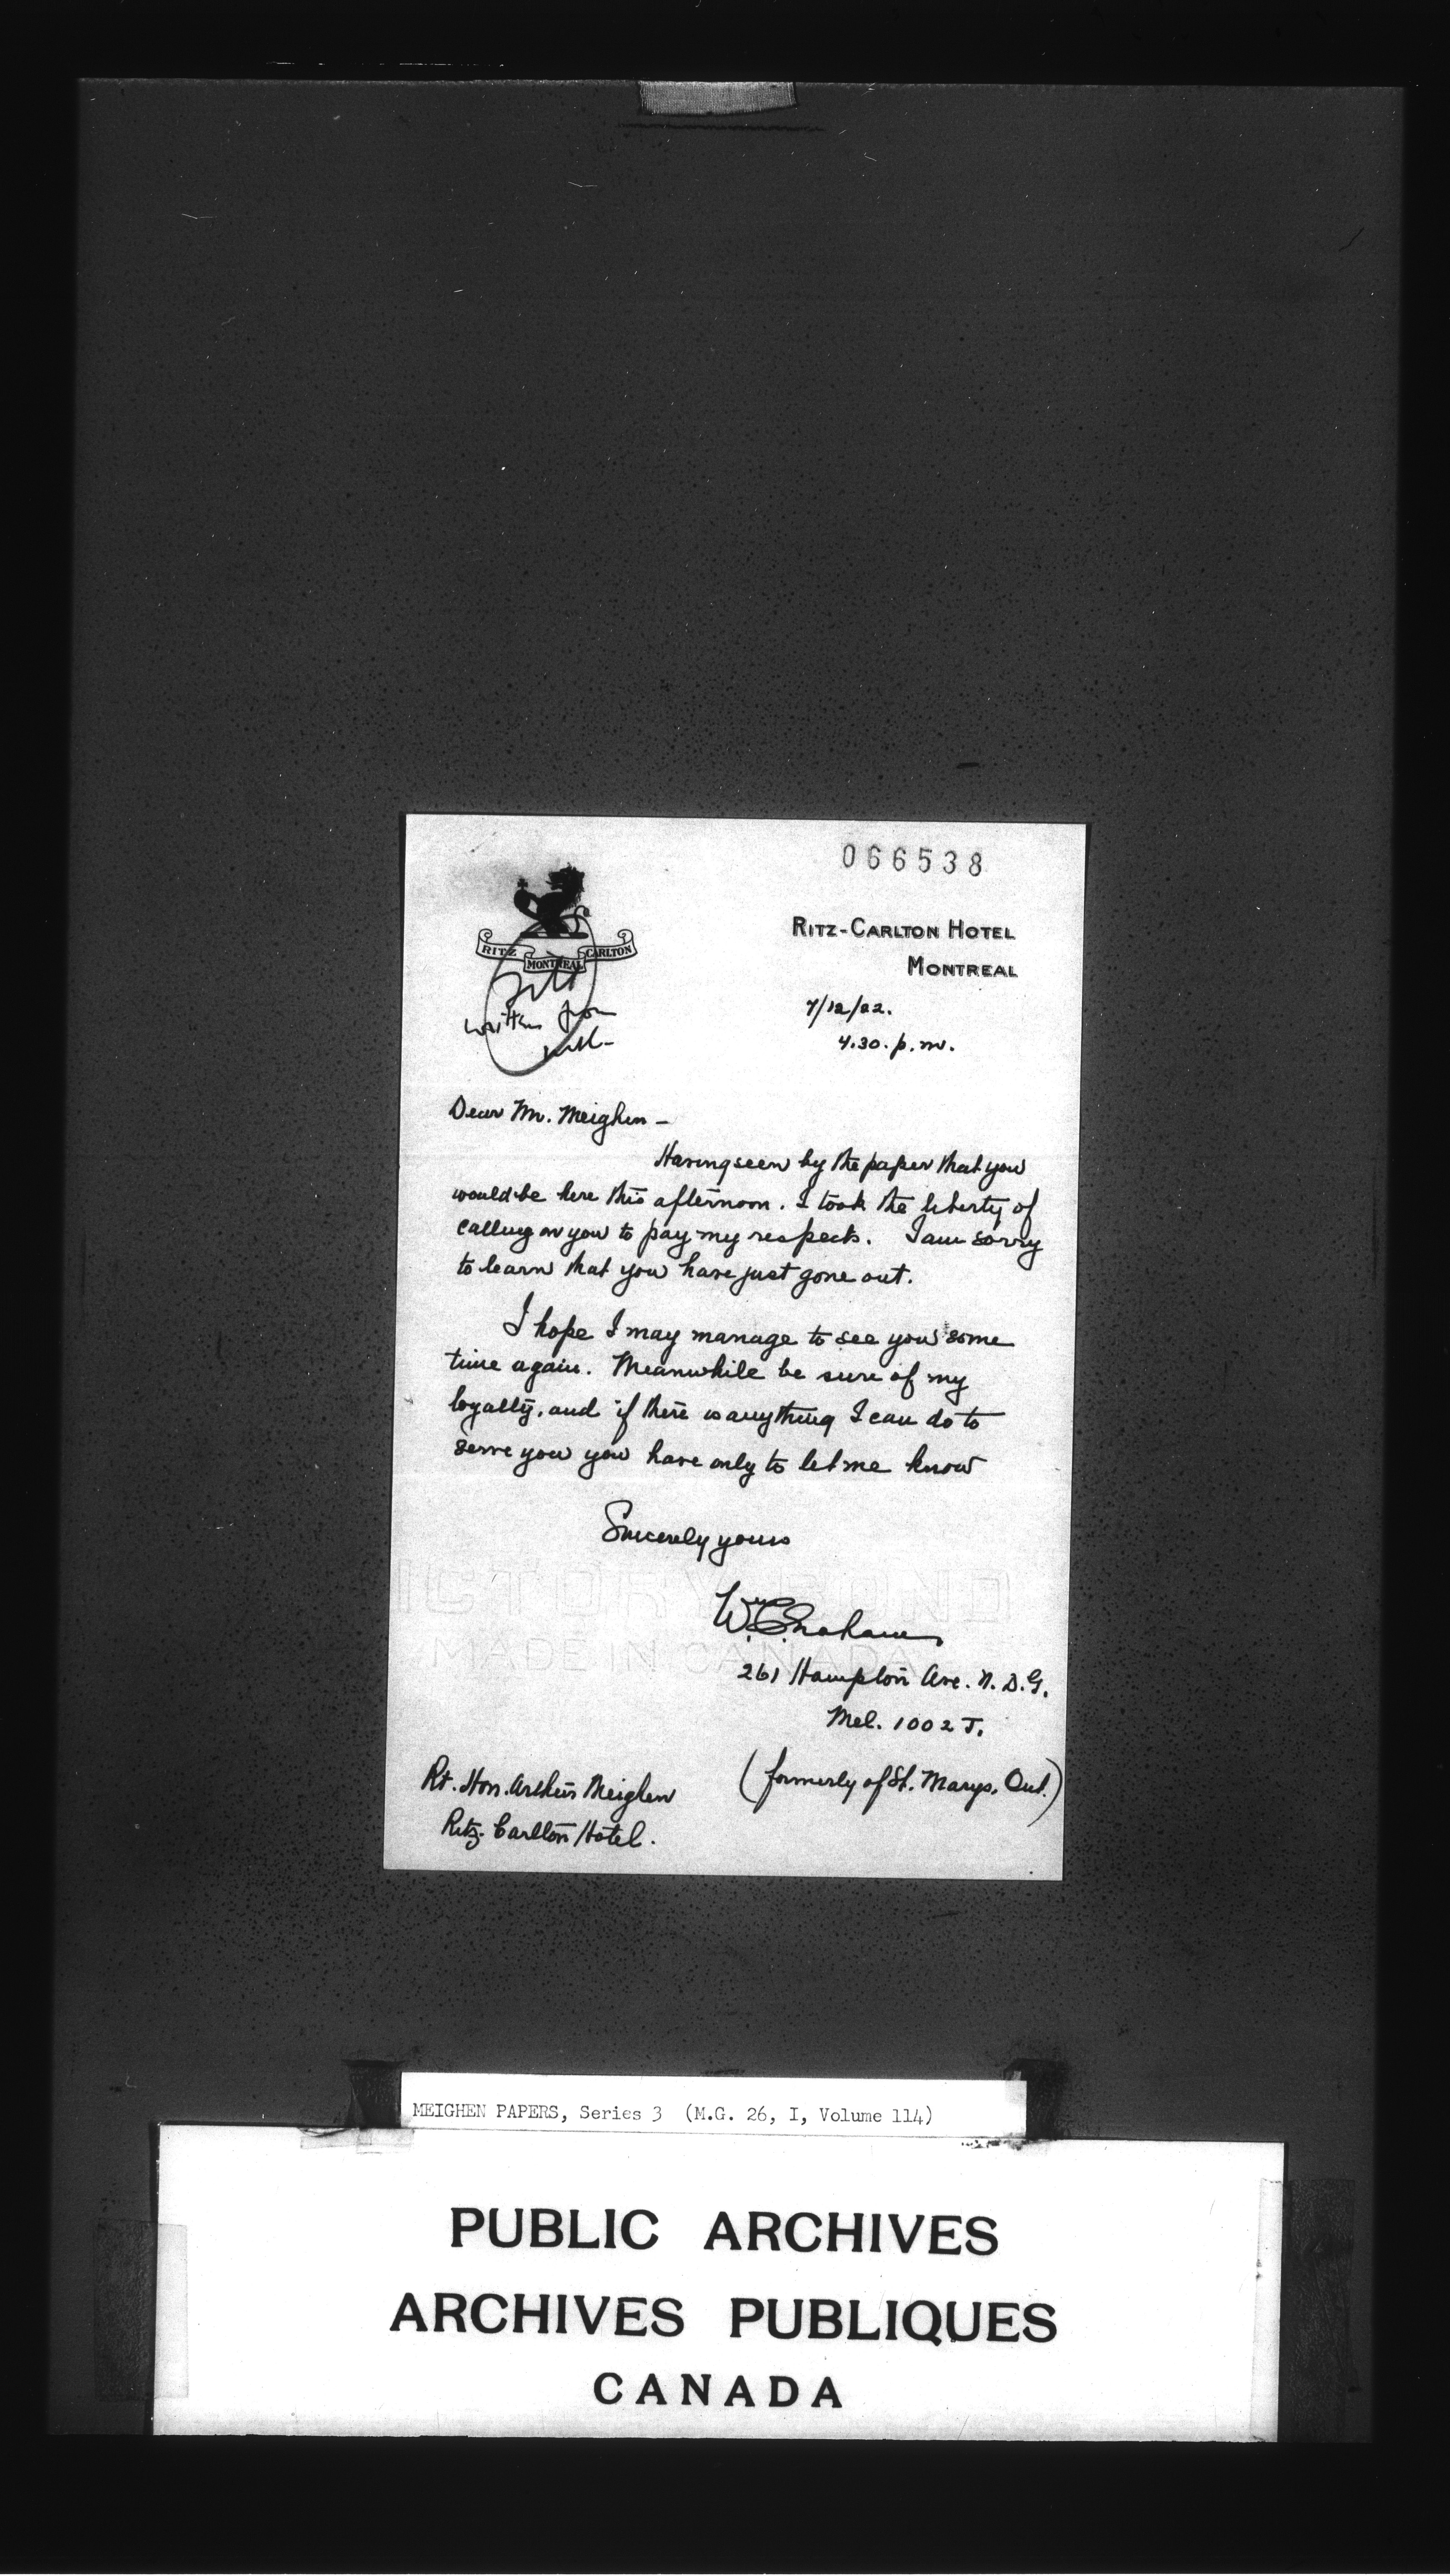 066538
RITZ MONTREAL CARLTON
RITZ-CARLTON HOTEL
MONTREAL
7/12/22.
4.30. p.m.
written from
Dear Mr. Meighen -
Having seen by the paper that you
would be here this afternoon. I took the liberty of
calling on you to pay my respects. I am sorry
to learn that you have just gone out.
I hope I may manage to see you some
time again. Meanwhile be sure of my
loyalty, and if there is anything I can do to
serve you you have only to let me know
Sincerely yours
ICTORY BOND
MADE IN CANADA
Graham
261 Hampton Ave. N.D.G.
Mel. 1002 J.
(formerly of St. Marys, Ont.)
Rt. Hon. Arthur Meighen
Ritz-Carlton Hotel.
MEIGHEN PAPERS, Series 3 (M.G. 26, I, Volume 114)
PUBLIC ARCHIVES
ARCHIVES PUBLIQUES
CANADA